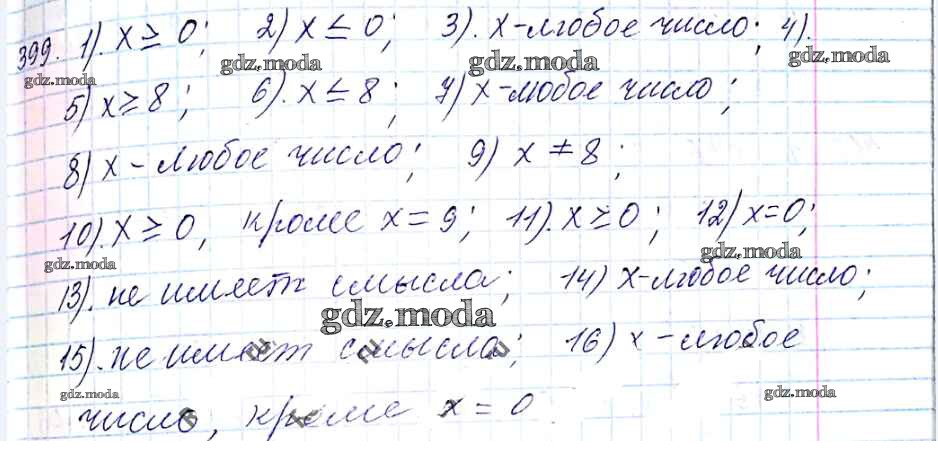 399. 1). x ≥ 0; 2) x ≤ 0; 3). x-любое число; 4).
gdz.moda gdz.moda gdz.moda gdz.moda
5) x ≥ 8; 6). x ≤ 8; 7) x-любое число;
gdz.moda gdz.moda
8) x - любое число; 9) x ≠ 8;
10). x ≥ 0, кроме x = 9; 11). x ≥ 0; 12) x=0;
gdz.moda gdz.moda
13). не имеет смысла; 14) x-любое число;
gdz.moda
15). не имеет смысла; 16) x - любое
gdz.moda gdz.moda
число, кроме x = 0